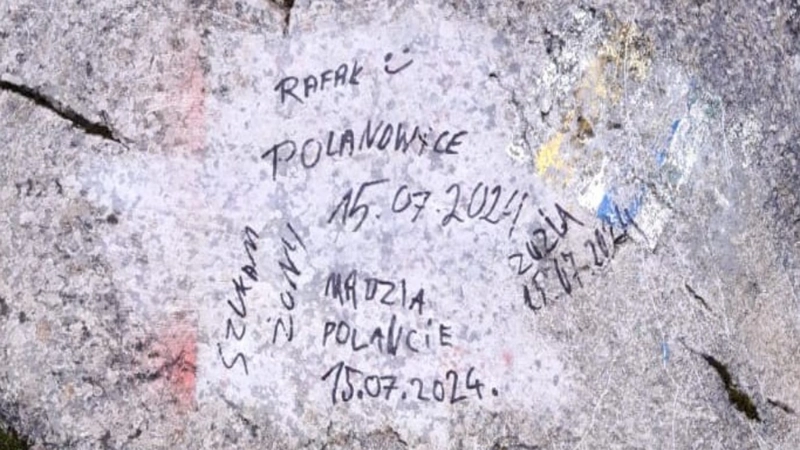 RAFAŁ
POLANOWICE
15.07.2024
SZUKAM
ŻONY
MADZIA
POLANCIE
15.07.2024.
ZUZIA
15.07.2024